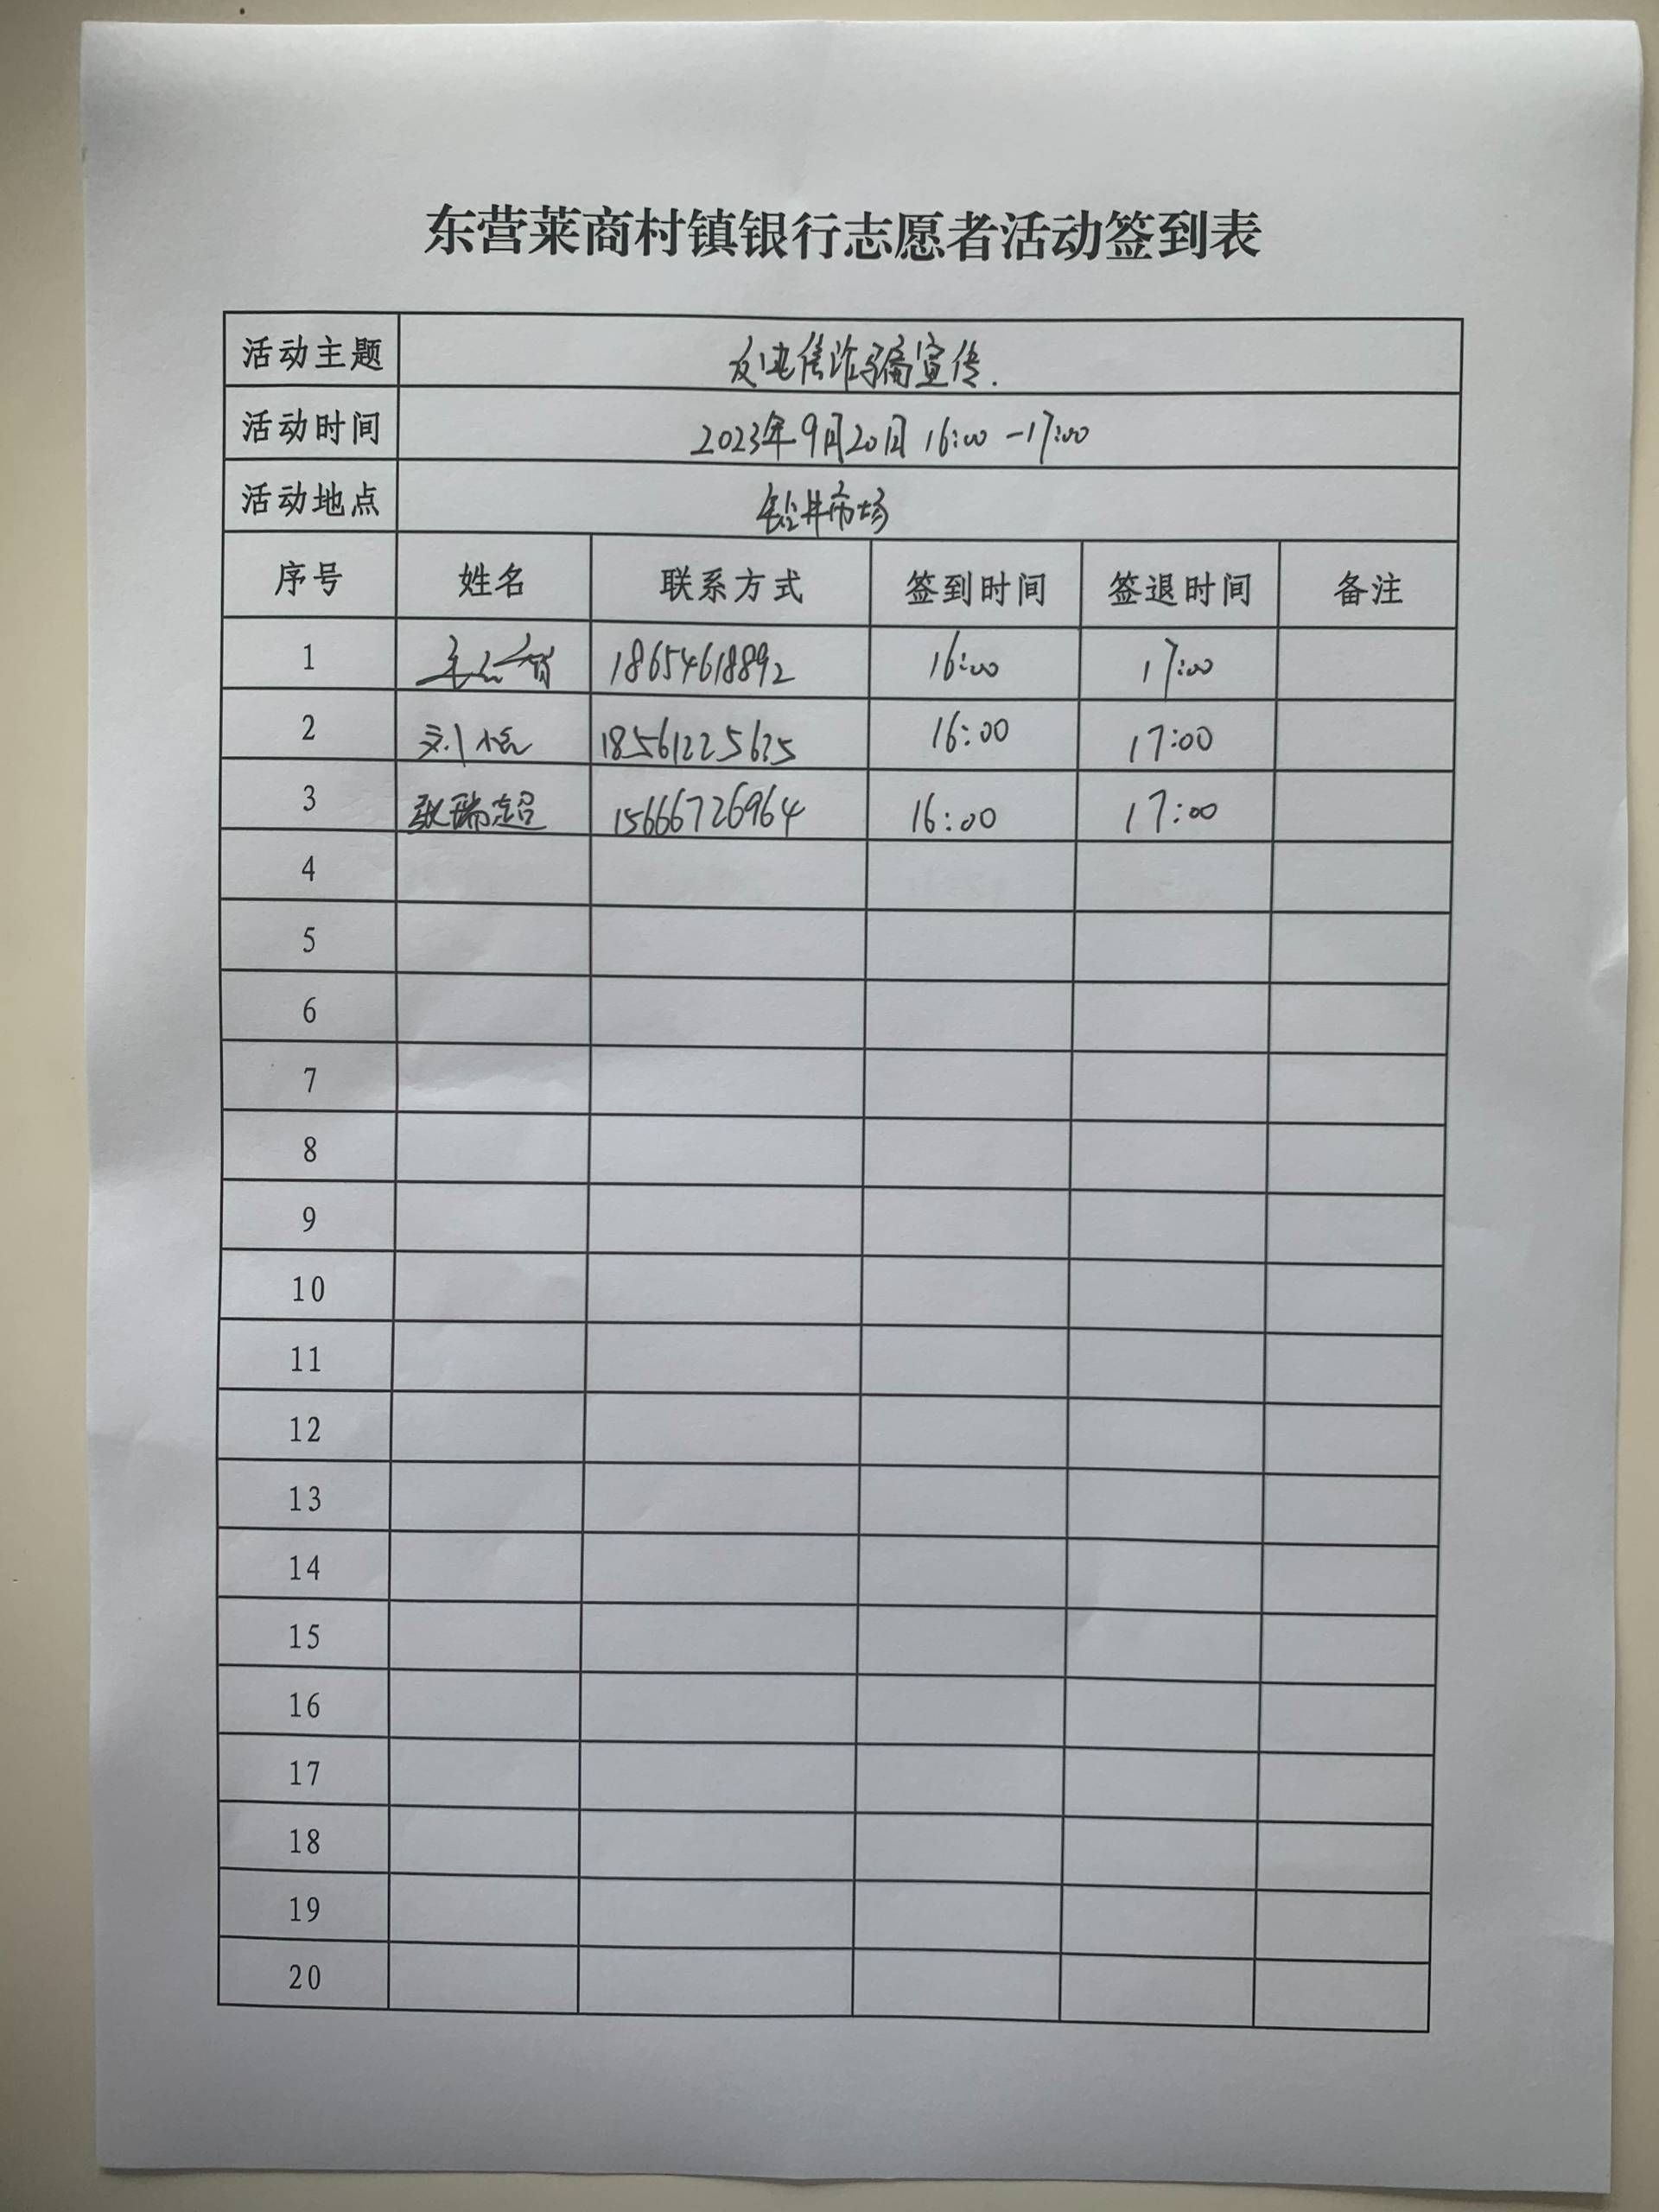 东营莱商村镇银行志愿者活动签到表
活动主题 反电信诈骗宣传.
活动时间 2023年9月20日 16:00-17:00
活动地点 钻井市场
序号 姓名 联系方式 签到时间 签退时间 备注
1 18654618892 16:00 17:00
2 刘 16:00 17:00
3 耿瑞超 15666726964 16:00 17:00
4
5
6
7
8
9
10
11
12
13
14
15
16
17
18
19
20